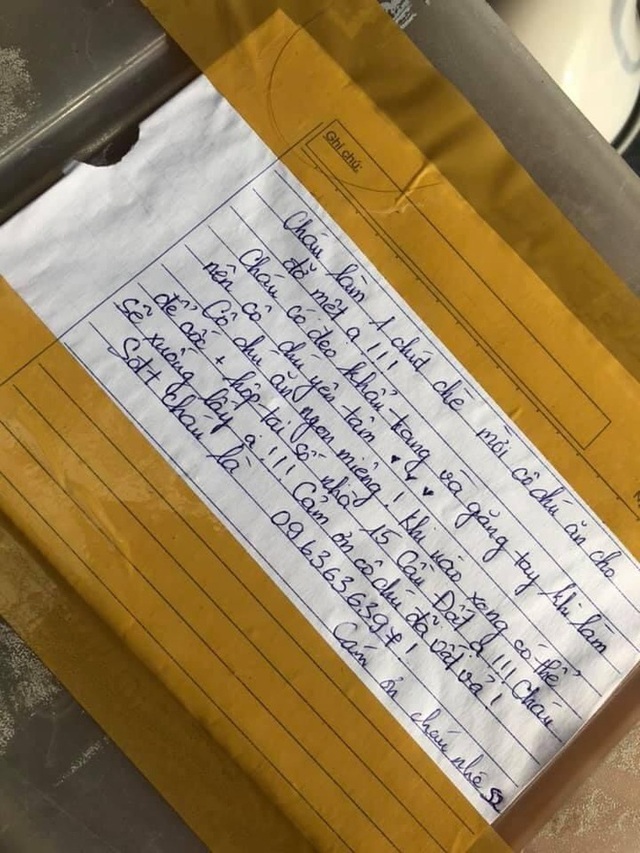 Ghi chú:
Cháu làm 1 chút chè mời cô chú ăn cho
đỡ mệt ạ !!!
Cháu có đeo khẩu trang và găng tay khi làm
nên cô chú yên tâm ♥ ♥ ♥
Cô chú ăn ngon miệng! Khi nào xong có thể
để cốc + hộp tại số nhà 15 Cầu Đất ạ !!! Cháu
sẽ xuống lấy ạ !!! Cảm ơn cô chú đã vất vả!
Sđt cháu là 0963636397!
Cám ơn cháu nhé